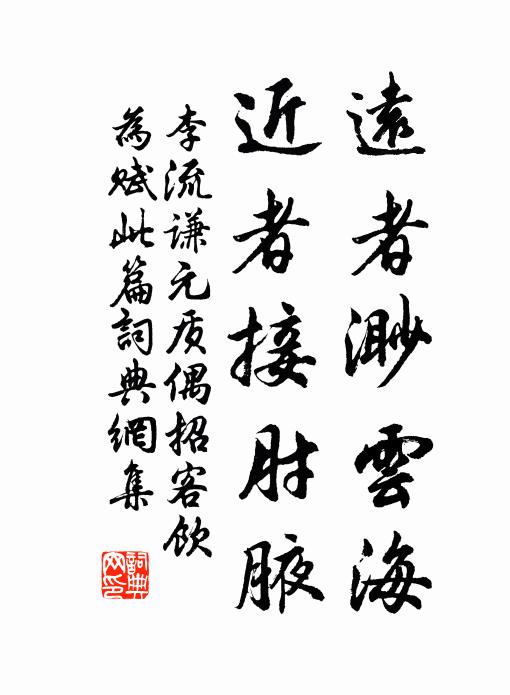 遠者渺雲海
近者接肘腋
李流謙元质偶招客飲
為赋此篇詞典網集
詞典网印